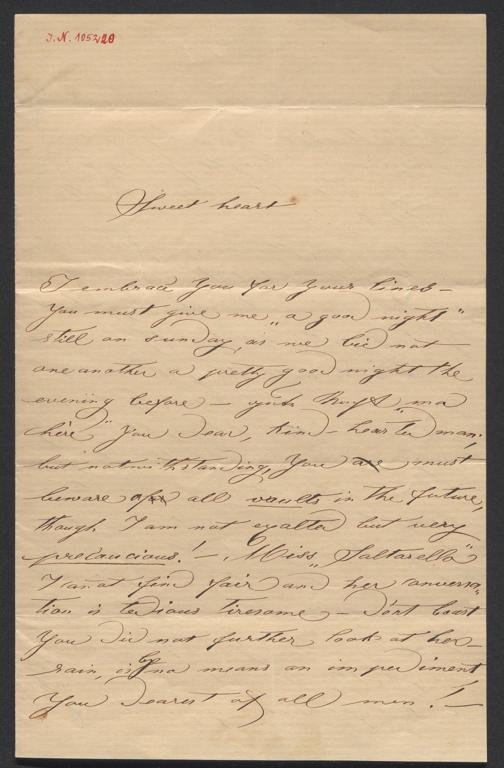 I.N. 1052/20
Sweet heart
I embrace You for Your lines –
You must give me „a good night"
still on sunday, as we bid not
one another a pretty good night the
evening before –
here" You dear, kind-hearted man.
but notwithstanding, You are must
beware of all vaults in the future,
though I am not exalted but very
precaucious! – Miss „Saltarella"
I can not find fair and her conversa-
tion is tedious tiresome – don't
You did not further look at her –
rain, is by no means an impediment
You dearest of all men! –